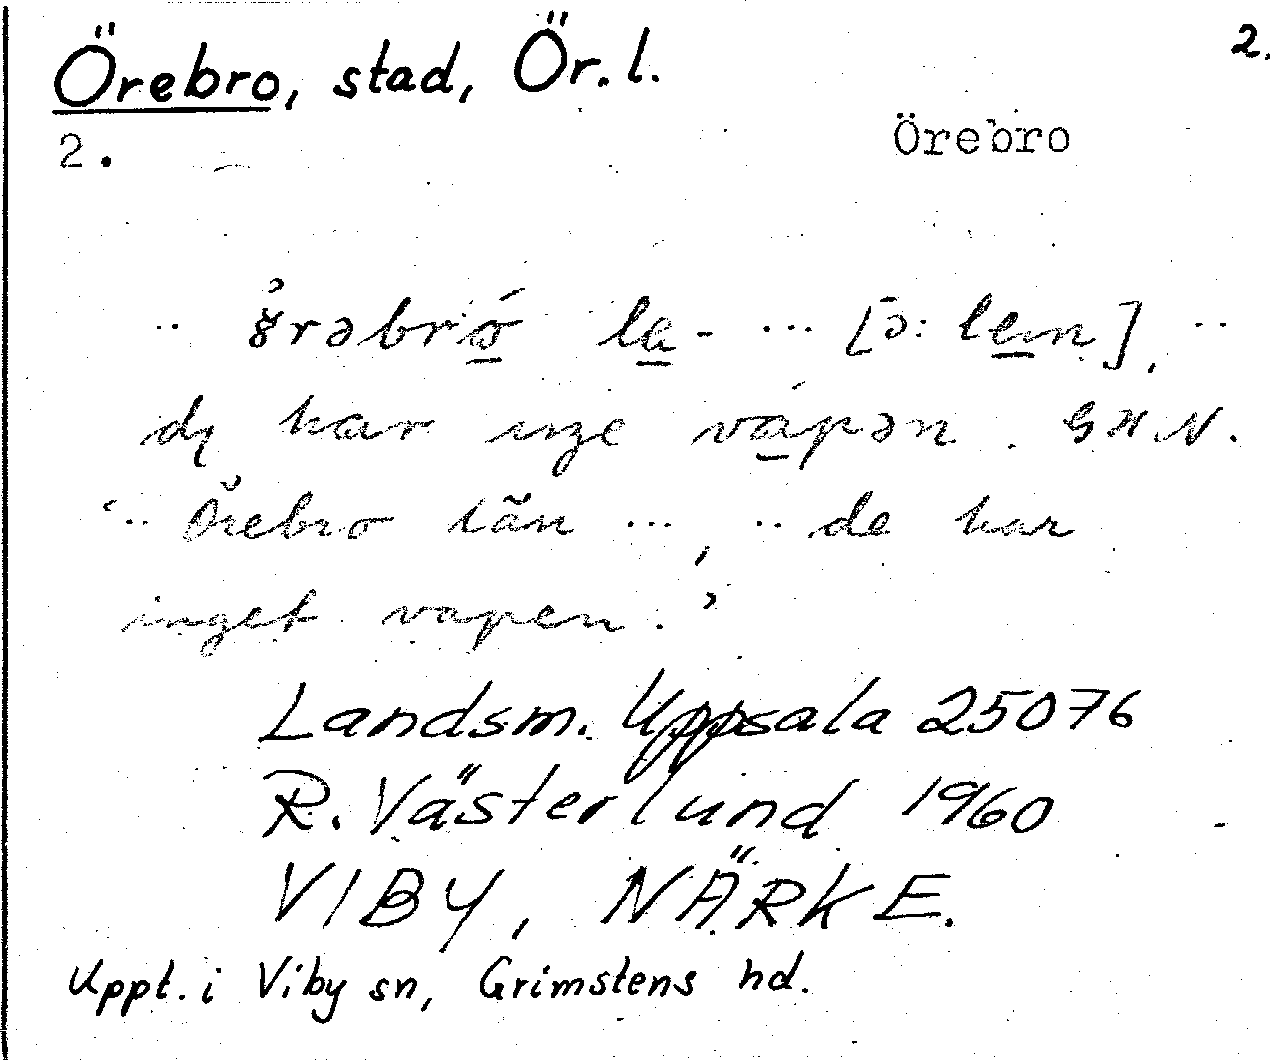 Örebro, stad, Ör. l.
2.
2.
Örebro
.. la- ... [ɔ: len], ..
har vápən. G.H.N.
'.. Örebro län ..., .. de har
inget vapen.'
Landsm. Uppsala 25076
R. Västerlund 1960
VIBY, NÄRKE.
Uppt. i Viby sn, Grimstens hd.